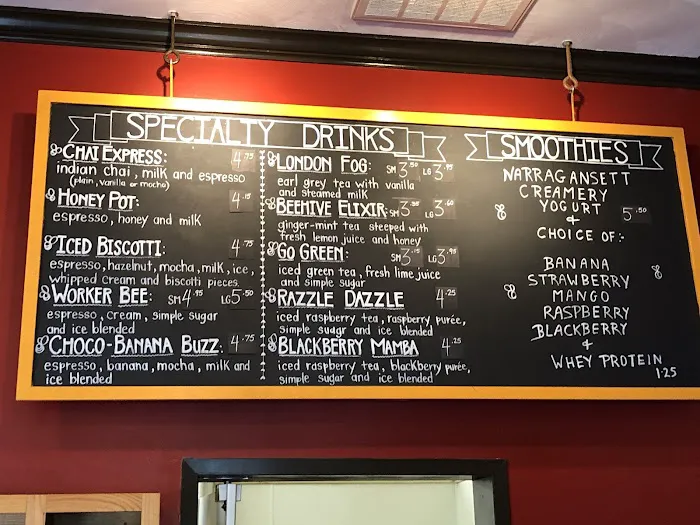 SPECIALTY DRINKS
CHAI EXPRESS: 4.75
indian chai, milk and espresso
(plain, vanilla or mocha)
HONEY POT:
espresso, honey and milk
ICED BISCOTTI: 4.75
espresso, hazelnut, mocha, milk, ice,
whipped cream and biscotti pieces
WORKER BEE: SM 4.95 LG 5.50
espresso, cream, simple sugar
and ice blended
CHOCO-BANANA BUZZ: 4.75
espresso, banana, mocha, milk and
ice blended
LONDON FOG: SM 3.50 LG 3.95
earl grey tea with vanilla
and steamed milk
BEEHIVE ELIXIR: SM 3. LG 3.
ginger-mint tea steeped with
fresh lemon juice and honey
GO GREEN: SM 3. LG 3.95
iced green tea, fresh lime juice
and simple sugar
RAZZLE DAZZLE 4.25
iced raspberry tea, raspberry purée,
simple sugar and ice blended
BLACKBERRY MAMBA 4.25
iced raspberry tea, blackberry purée,
simple sugar and ice blended
SMOOTHIES
NARRAGANSETT
CREAMERY
YOGURT
&
5.50
CHOICE OF:-
BANANA
STRAWBERRY
MANGO
RASPBERRY
BLACKBERRY
&
WHEY PROTEIN
1.25